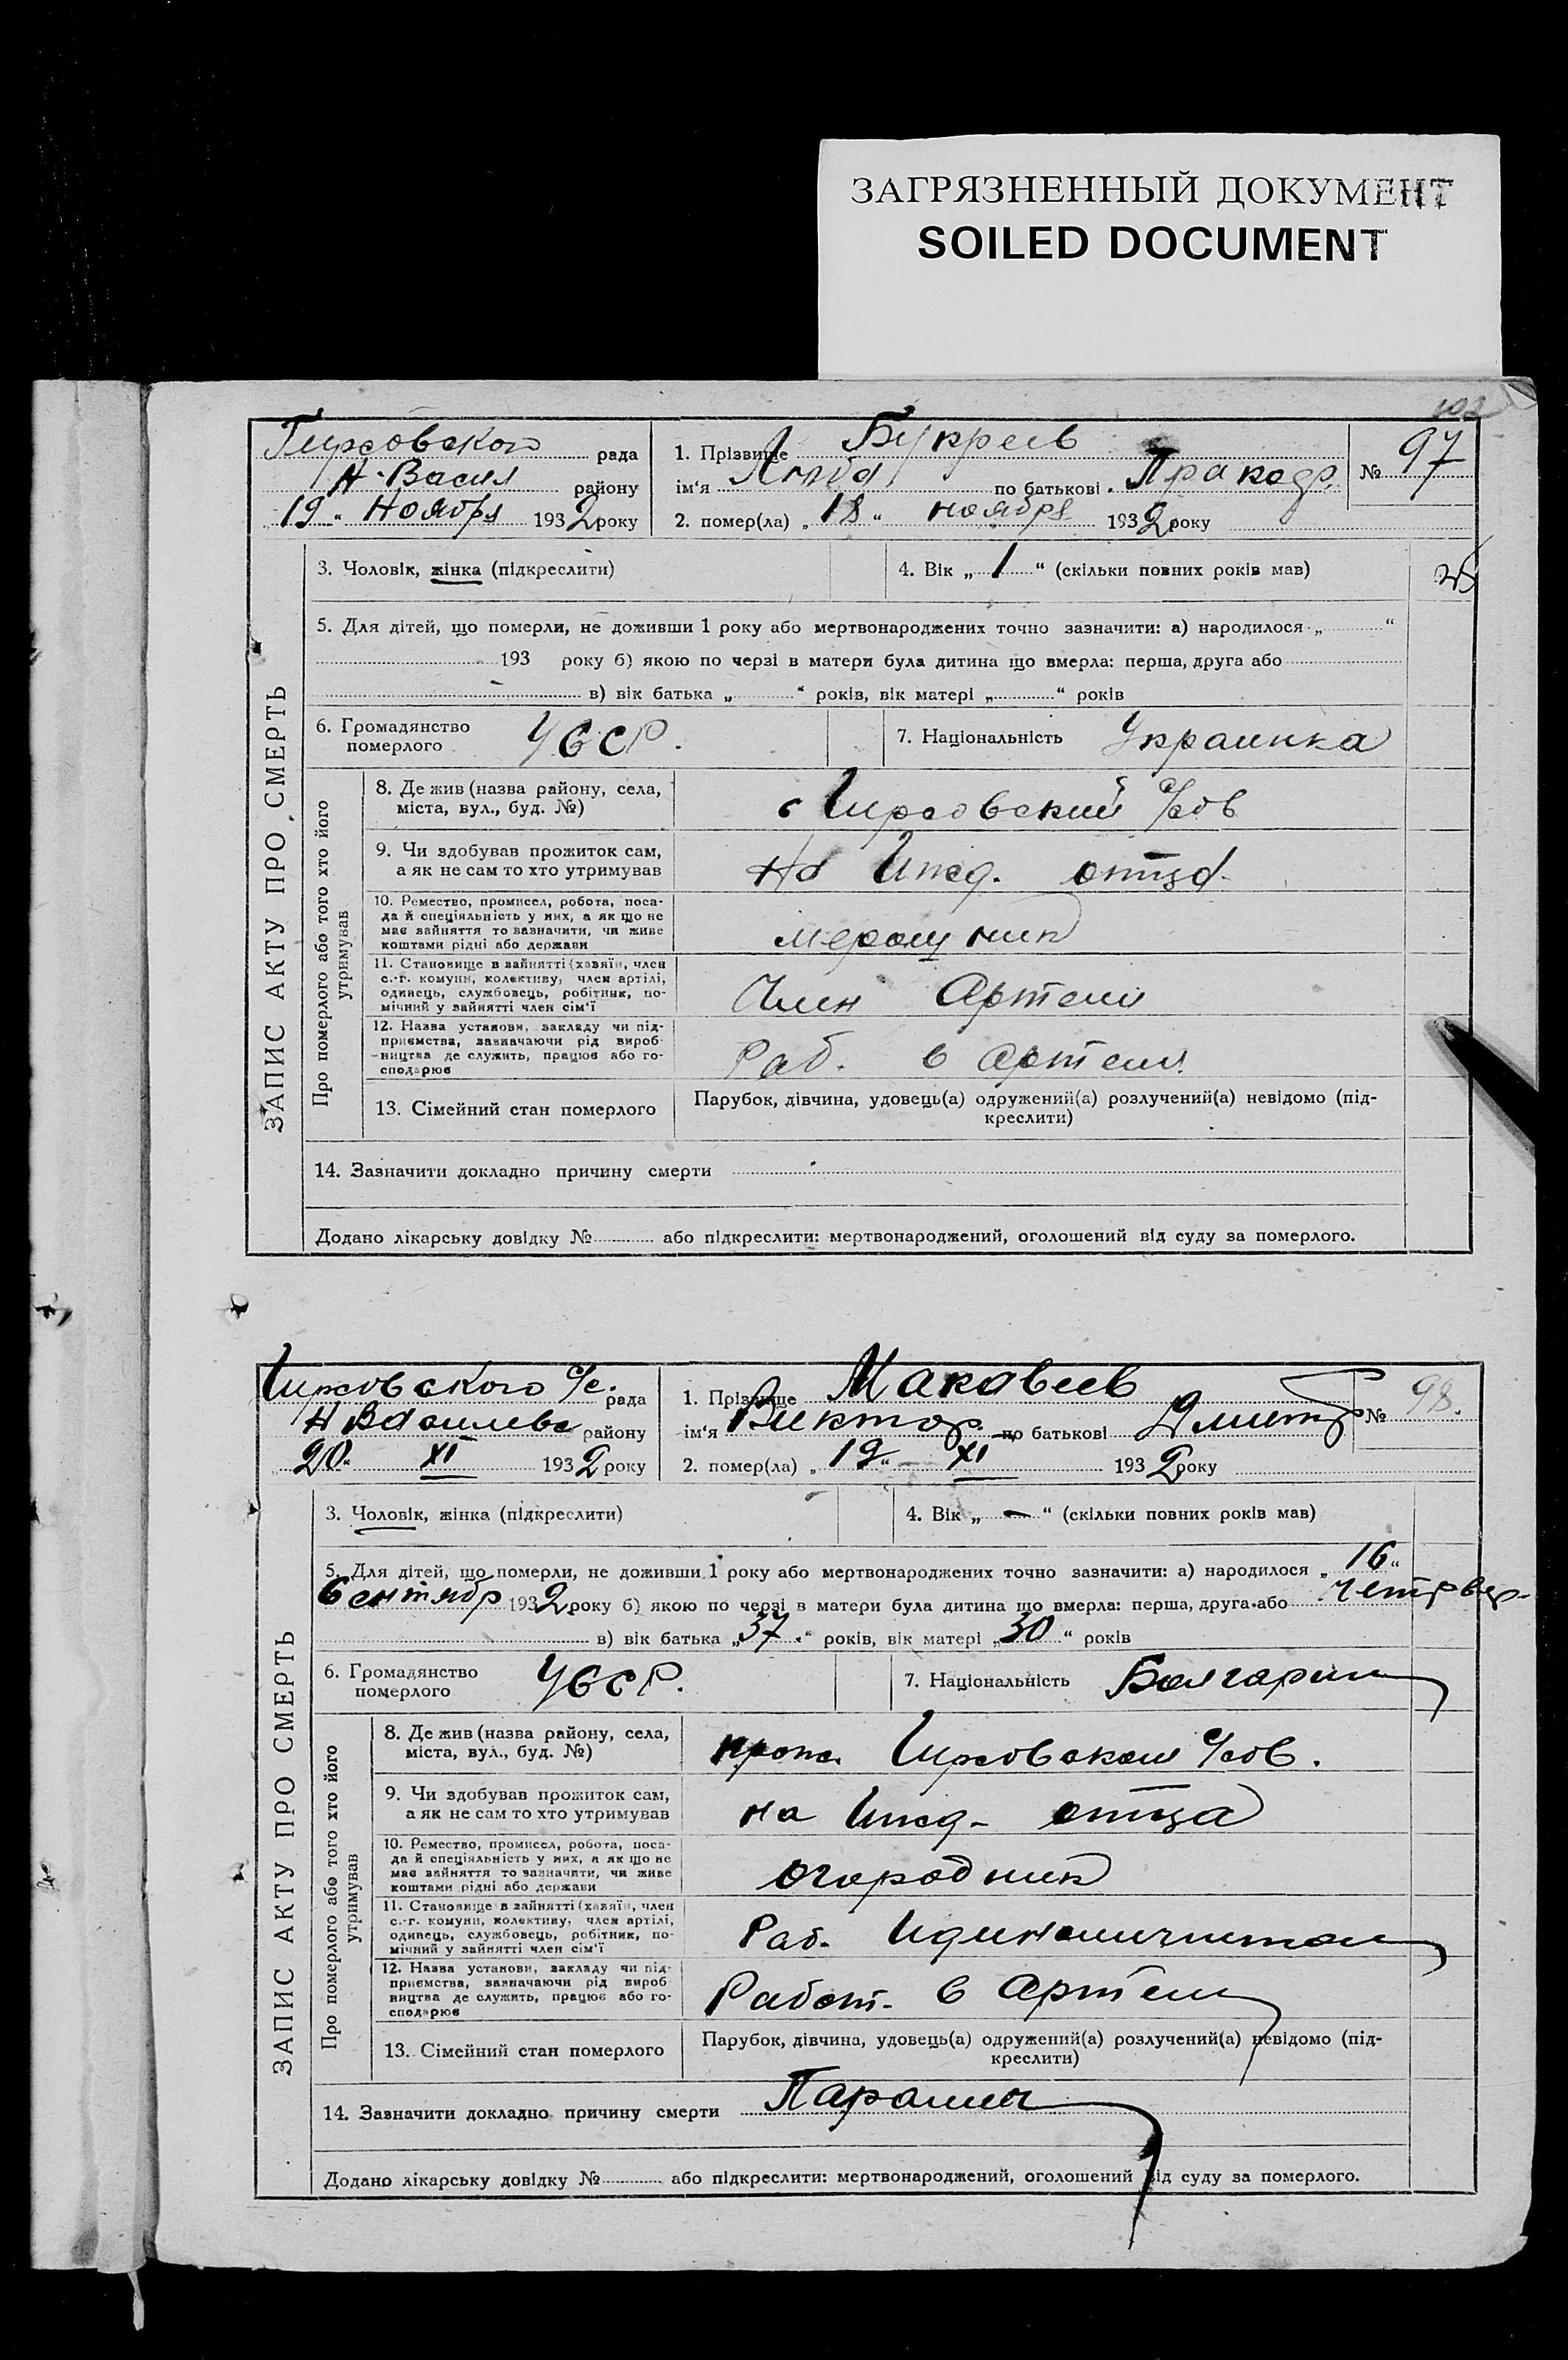 ЗАГРЯЗНЕННЫЙ ДОКУМЕНТ
SOILED DOCUMENT
102
Гирсовского рада
Н-Васил району
„19“ Ноября 1932 року
1. Прізвище Букреев
ім‘я Люба по батькові
№ 97
2. помер(ла) „18“ ноября 1932 року
3. Чоловік, жінка (підкреслити)
4. Вік „1“ (скільки повних років мав)
5. Для дітей, що померли, не доживши 1 року або мертвонароджених точно зазначити: а) народилося „ “
193 року б) якою по черзі в матери була дитина що вмерла: перша, друга або
в) вік батька „ “ років, вік матері „ “ років
6. Громадянство померлого УССР.
7. Національність Украинка
ЗАПИС АКТУ ПРО СМЕРТЬ
Про померлого або того хто його утримував
8. Де жив (назва району, села,
міста, вул., буд. №)
Гирсовский с/сов
9. Чи здобував прожиток сам,
а як не сам то хто утримував
На Ижд. отца
10. Ремество, промисел, робота, поса-
да й спеціяльність у них, а як що не
має зайняття то зазначити, чи живе
коштами рідні або держави
11. Становище в зайнятті (хазяїн, член
с.-г. комуни, колективу, член артілі,
одинець, службовець, робітник, по-
мічний у зайнятті член сім‘ї
Член Артели
12. Назва установи, закладу чи під-
приємства, зазначаючи рід вироб-
ництва де служить, працює або го-
сподарює
Раб. в артели
13. Сімейний стан померлого
Парубок, дівчина, удовець(а) одружений(а) розлучений(а) невідомо (під-
креслити)
14. Зазначити докладно причину смерти
Додано лікарську довідку № або підкреслити: мертвонароджений, оголошений від суду за померлого.
Гирсовского с/с. рада
району
„20“ XI 1932 року
1. Прізвище Макавеев
ім‘я Виктор по батькові Дмитр
№ 98.
2. помер(ла) „19“ XI 1932 року
3. Чоловік, жінка (підкреслити)
4. Вік „—“ (скільки повних років мав)
5. Для дітей, що померли, не доживши 1 року або мертвонароджених точно зазначити: а) народилося „16“
Сентябр 1932 року б) якою по черзі в матери була дитина що вмерла: перша, друга або четвер.
в) вік батька „37“ років, вік матері „30“ років
6. Громадянство померлого УССР.
7. Національність Болгарин
ЗАПИС АКТУ ПРО СМЕРТЬ
Про померлого або того хто його утримував
8. Де жив (назва району, села,
міста, вул., буд. №)
прож. Гирсовском с/сов.
9. Чи здобував прожиток сам,
а як не сам то хто утримував
на Ижд. отца
10. Ремество, промисел, робота, поса-
да й спеціяльність у них, а як що не
має зайняття то зазначити, чи живе
коштами рідні або держави
огородник
11. Становище в зайнятті (хазяїн, член
с.-г. комуни, колективу, член артілі,
одинець, службовець, робітник, по-
мічний у зайнятті член сім‘ї
Раб.
12. Назва установи, закладу чи під-
приємства, зазначаючи рід вироб-
ництва де служить, працює або го-
сподарює
Работ. в Артели
13. Сімейний стан померлого
Парубок, дівчина, удовець(а) одружений(а) розлучений(а) невідомо (під-
креслити)
14. Зазначити докладно причину смерти Паралич
Додано лікарську довідку № або підкреслити: мертвонароджений, оголошений від суду за померлого.